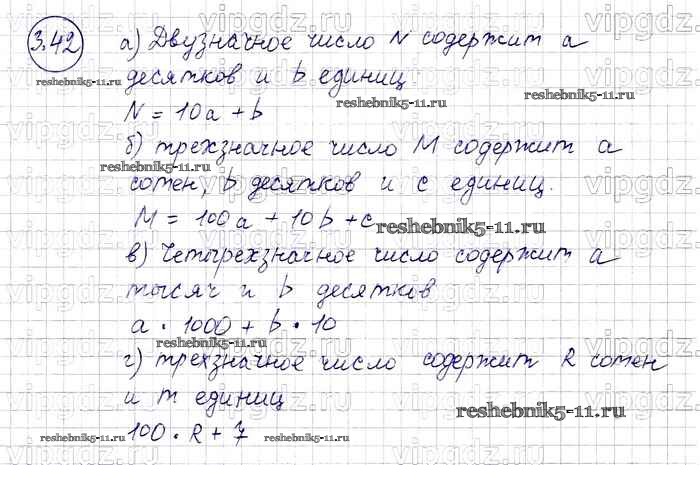 3.42 а) Двузначное число N содержит a
десятков и b единиц
reshebnik5-11.ru
reshebnik5-11.ru
N = 10a + b
б) трехзначное число M содержит a
reshebnik5-11.ru
сотен, b десятков и c единиц.
M = 100a + 10b + c
reshebnik5-11.ru
в) Четырехзначное число содержит a
тысяч и b десятков
a · 1000 + b · 10
reshebnik5-11.ru
г) трехзначное число содержит R сотен
и m единиц
reshebnik5-11.ru
100 · R + 7
reshebnik5-11.ru
reshebnik5-11.ru
vipgdz.ru